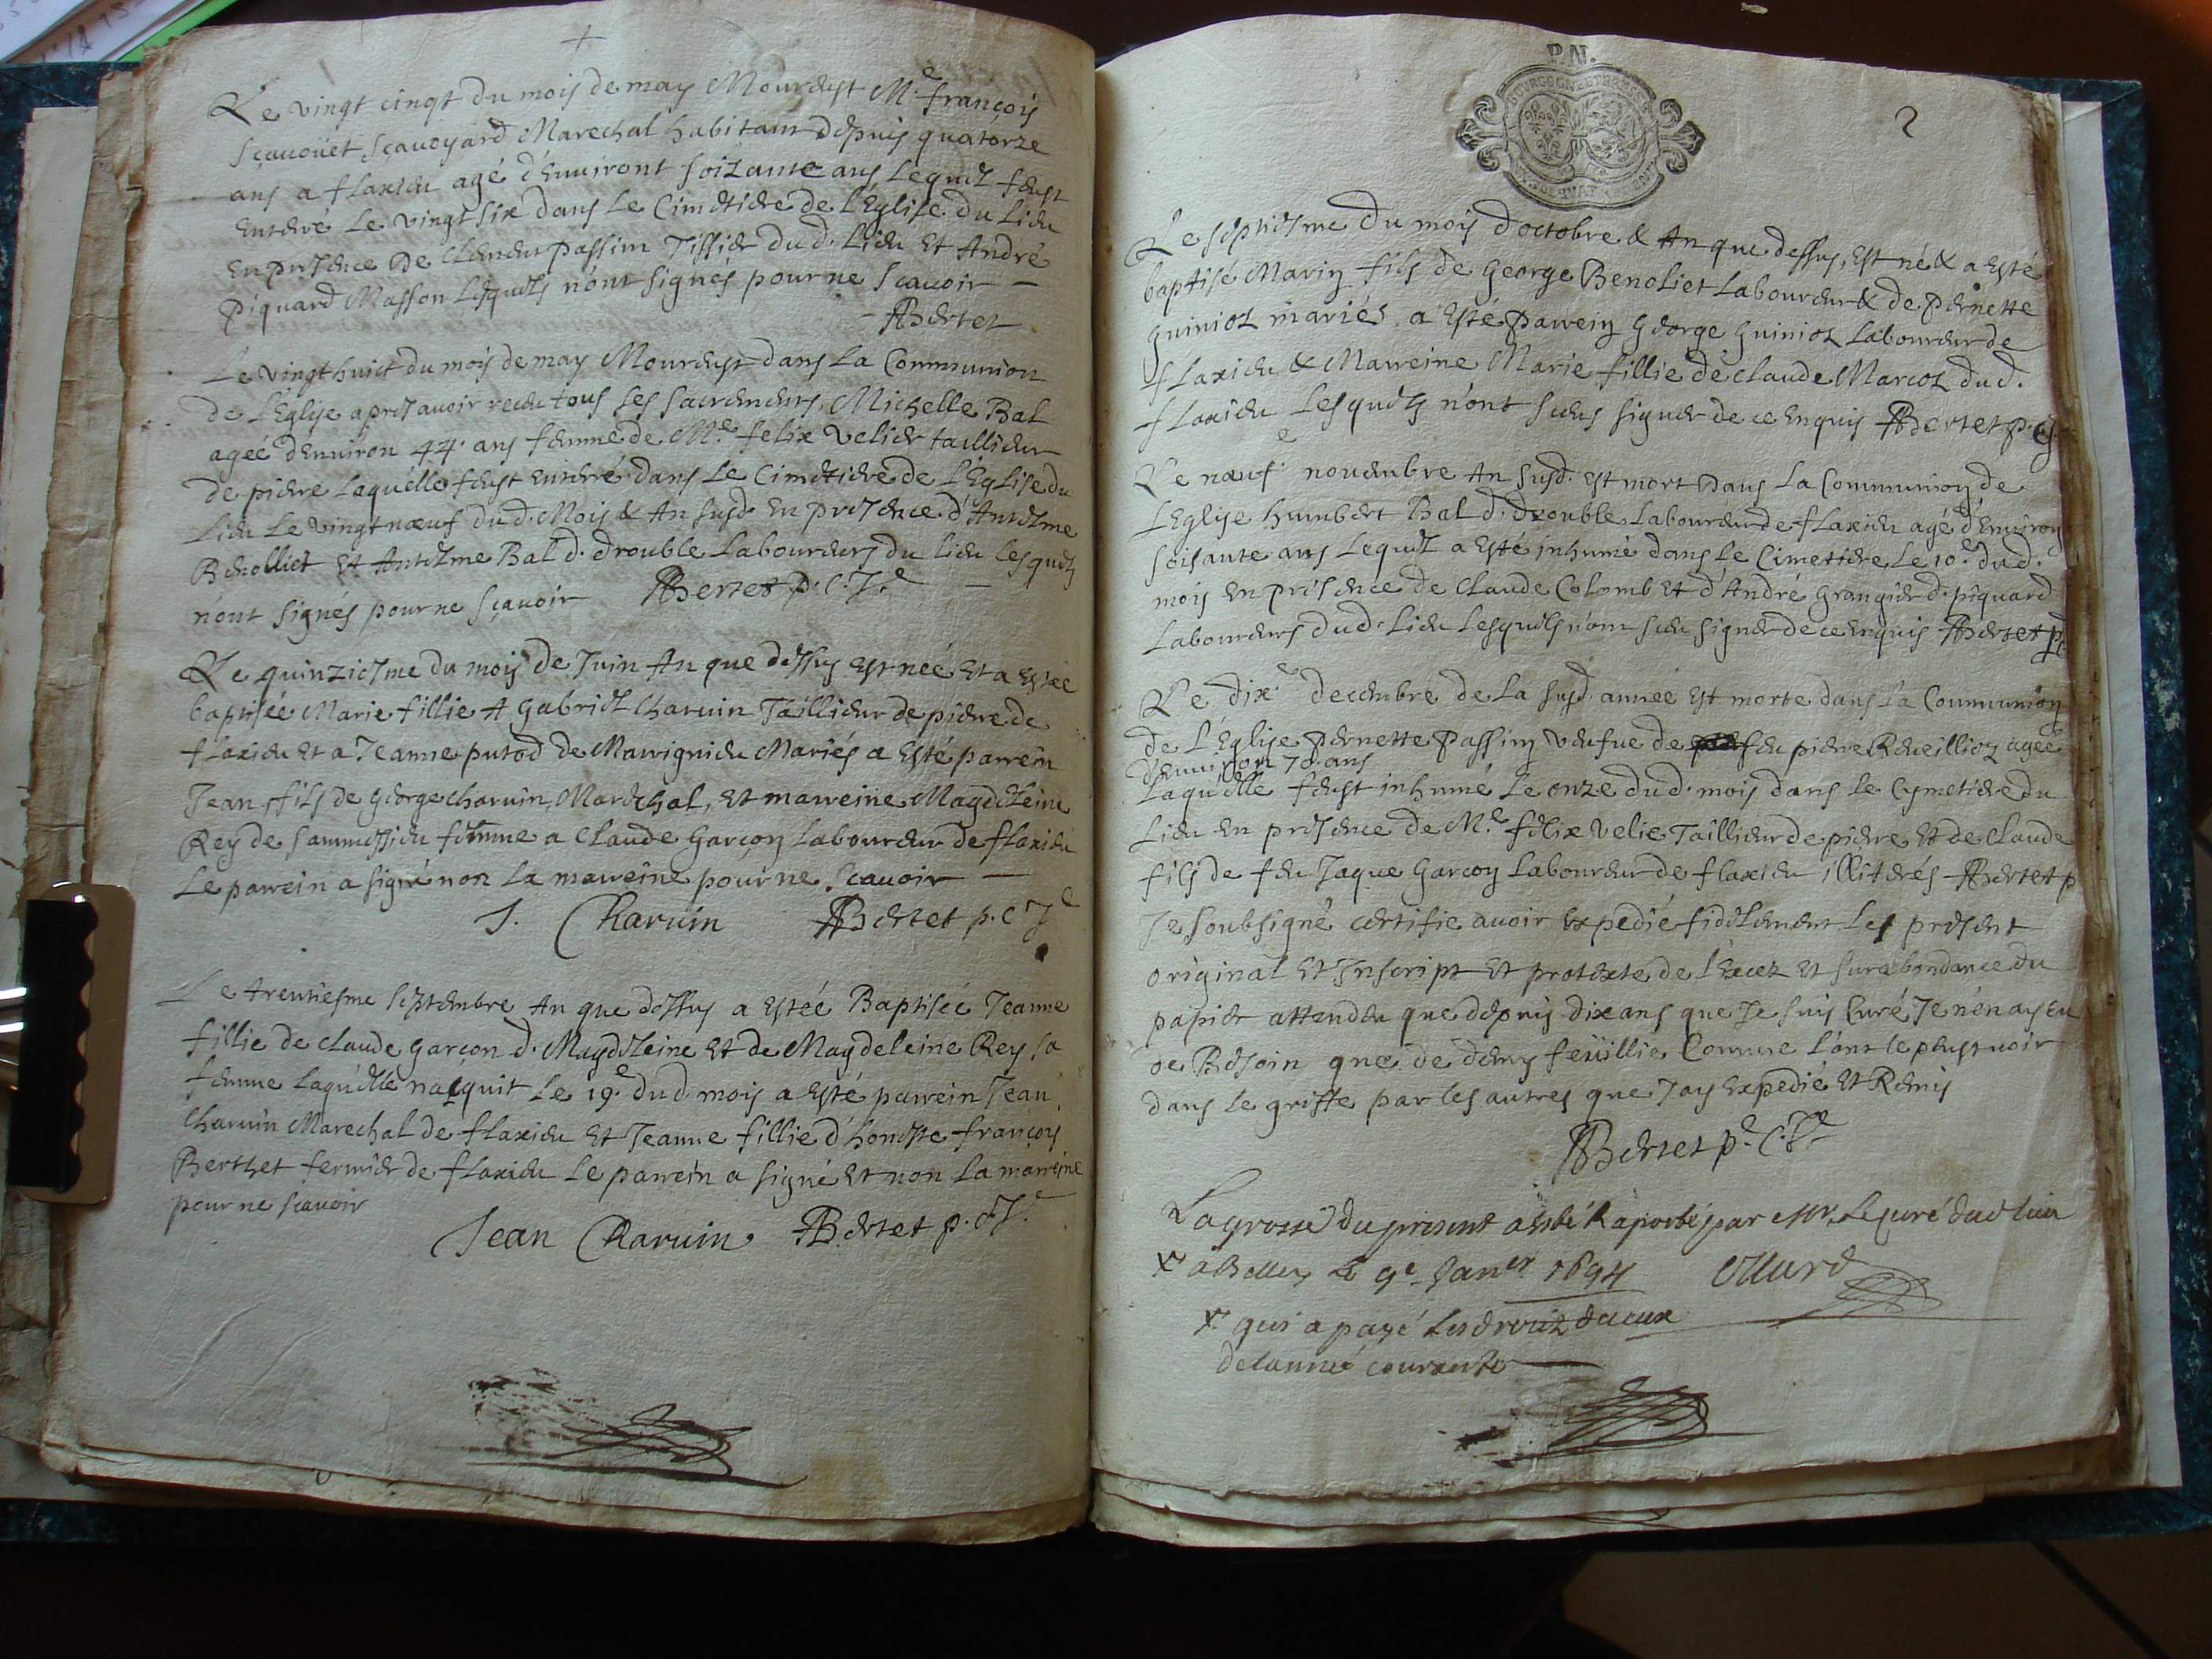 Le vingt cinqt du mois de may Mourust Me. françois
Sçauoüet Sçauoyard Marechal habitant depuis quatorze
ans a flaxieu agé d'Enuiront soizante ans Lequel feust
Enterré Le vingt six dans Le Cimetiere de L'Eglise du Lieu
En presence De Passim Tissier dud. Lieu Et André
Piquard Masson Lesquels n'ont signés pour ne Scauoir —
ABertet
Le vingt huict du mois de may Mourust dans La Communion
de L'Eglise apres auoir receu tous les sacremens, Michelle Bal
ageé d'Enuiron 44. ans femme de Me. felix velier taillieur
de pierre Laquelle feust enterré dans Le Cimetiere de L'Eglise du
Lieu Le vingt nœuf dud. Mois & An susd. En presence d'Antelme
Benolliet Et Antelme Bal d. drouble Laboureurs du lieu lesquels
n'ont signés pour ne sçauoir ABertet p. C. Je —
Le quinziesme du mois de Juin An que dessus est neé Et a esteé
baptiseé Marie fillie A Gabriel Charuin Taillieur de pierre de
flaxieu Et a Jeanne putod de Marrignieu Mariés a Esté parrein
Jean ffils de George Charuin, Marechal, Et marreine Magdeleine
Rey de Sammessieu femme a Claude Garçon Laboureur de flaxieu
Le parrein a signé non La marreine pour ne scauoir —
J. Charuin ABertet p. C Je
Le trentiesme Septembre An que dessus a esteé Baptiseé Jeanne
fillie de Claude Garcon d. Magdeleine Et de Magdeleine Rey sa
femme Laquelle nacquit Le 19e. dud mois a Esté parrein Jean
Charuin Marechal de flaxieu Et Jeanne fillie d'honeste françois
Berthet fermier de flaxieu Le parrein a signé Et non La marreine
pour ne scauoir
Jean Charuin ABertet p. C Je.
P.N.
BOURGOGNE ET BRESSE
2
Le septiesme du mois d'octobre & An que dessus, Est né & a Esté
baptisé Marin fils de George Benoliet Laboureur & de Pernette
Guiniot mariés a Esté Parrein George Guiniot Laboureur de
flaxieu & Marreine Marie fillie de Claude Marcot dud.
flaxieu Lesquels n'ont sceus signer de ce Enquis ABertet p.
Le nœufe nouembre An susd. Est mort Dans La Communion de
L'Eglise humbert Bal d. drouble Laboureur de flaxieu agé d'Enuiron
soisante ans Lequel a Esté inhumé dans Le Cimetiere Le 10e. dud.
mois En présence de Claude Colomb Et d'André Grangier d. piquard
Laboureurs dud. Lieu Lesquels n'ont sceu signer de ce enquis ABertet p
Le dixe decembre de La susd. anneé Est morte dans La Communion
de L'Eglise Pernette Passin veufue de feu pierre Reueillion ageé
d'Enuiron 70 ans
Laquelle feust inhumé Le onze dud. mois dans Le Cymetiere du
Lieu En presence de Me. felix velie Taillieur de pierre Et de Claude
fils de feu Jaque Garcon Laboureur de flaxieu illiterés ABertet p
Je soubsigné certifie auoir Expedié fidelement Le present
original Et Inscript Et protexte de l'Excez Et surabondance du
papier attendeu que depuis dix ans que Je suis Curé Je n'en ay Eu
de Besoin que de demy feüillie Comme L'ont le peust voir
dans Le griffe par les autres que J'ay Expedié Et Remis
ABertet pe. C. Je
La grosse du present a esté Raporté par Mr. Le curé dud lieu
x a Belley Le 9e Janer 1694
x qui a payé Les droitz deceux
de lanneé courante